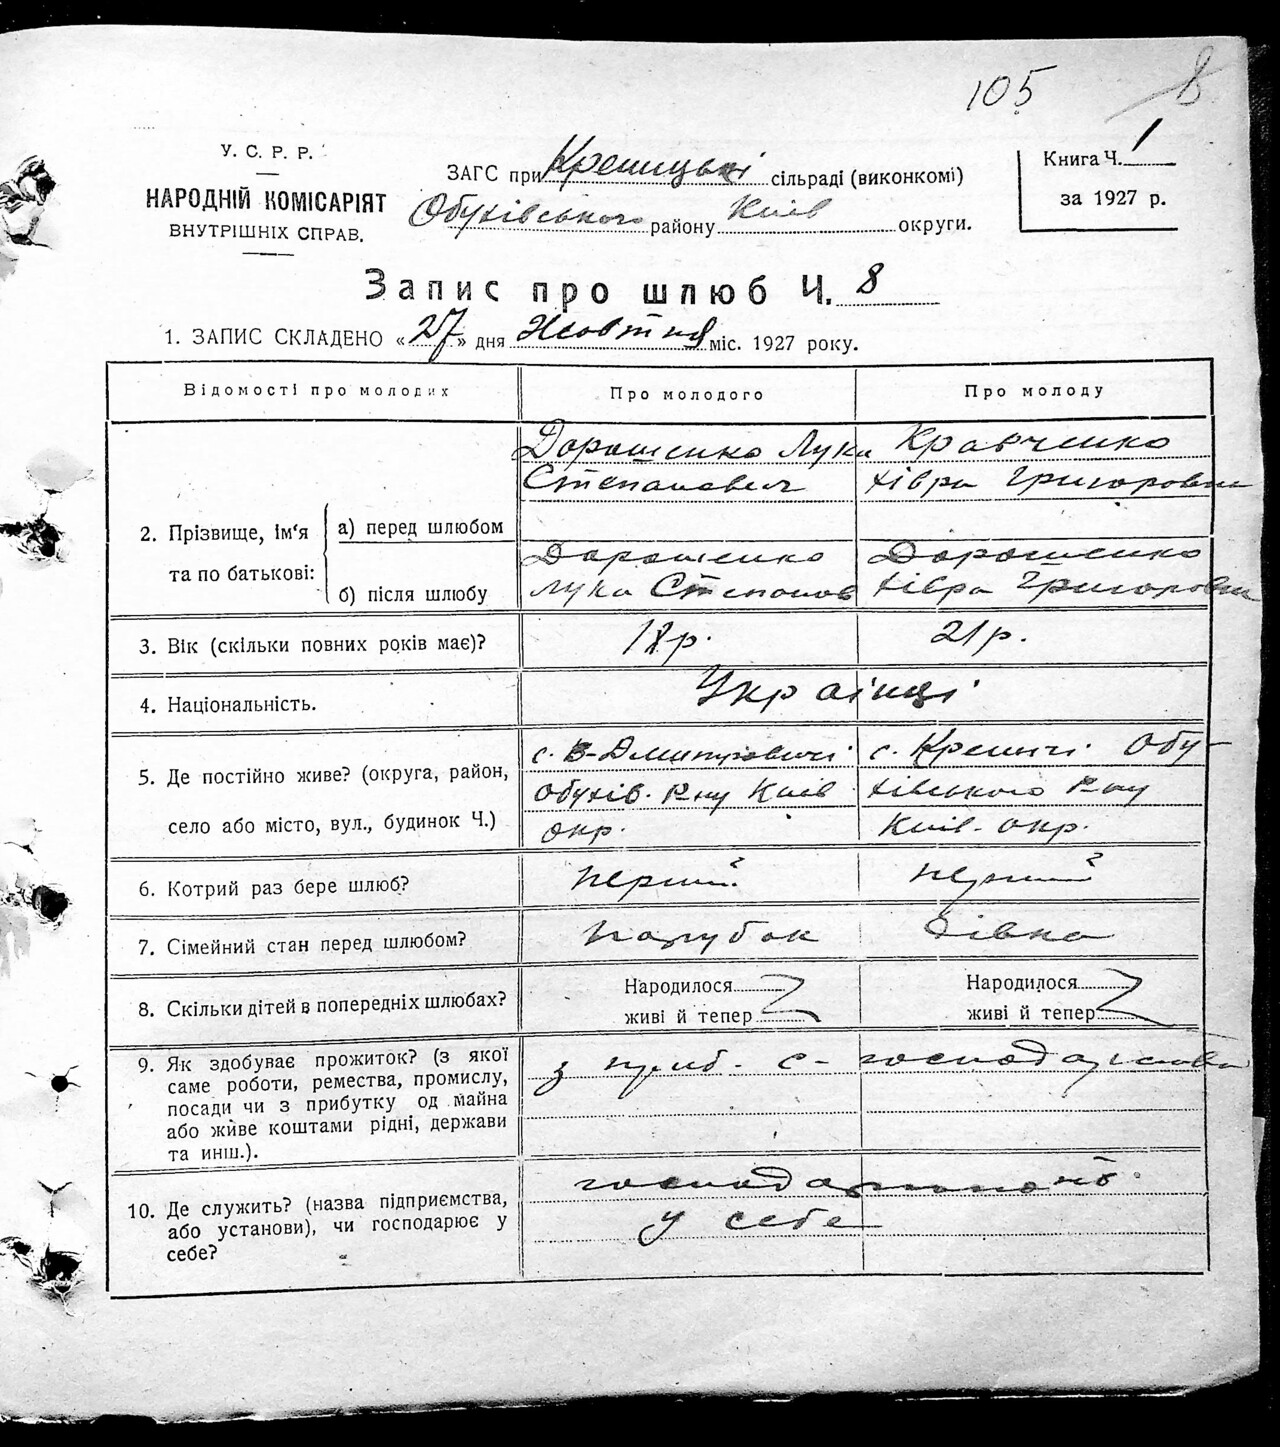 105 8
У. С. Р. Р.
НАРОДНІЙ КОМІСАРІЯТ
ВНУТРІШНІХ СПРАВ.
ЗАГС при Креницькі сільраді (виконкомі)
Обухівського району Київ округи.
Книга Ч. 1
за 1927 р.
Запис про шлюб Ч. 8
1. ЗАПИС СКЛАДЕНО «27» дня Жовтня міс. 1927 року.
Відомості про молодих Про молодого Про молоду
2. Прізвище, ім'я та по батькові:
а) перед шлюбом
Дорошенко Лука
Степанович
Кравченко
Хівря Григоровна
б) після шлюбу
Дорошенко
Лука Степанов
Дорошенко
Хівря Григоровна
3. Вік (скільки повних років має)? 18 р. 21 р.
4. Національність. Українці
5. Де постійно живе? (округа, район,
село або місто, вул., будинок Ч.)
с. В-Дмитровичі
Обухів. Р-ну Київ
окр.
с. Креничі Обу-
хівського Р-ну
Київ. окр.
6. Котрий раз бере шлюб? перший перший
7. Сімейний стан перед шлюбом? парубок дівка
8. Скільки дітей в попередніх шлюбах?
Народилося
живі й тепер
Народилося
живі й тепер
9. Як здобуває прожиток? (з якої
саме роботи, ремества, промислу,
посади чи з прибутку од майна
або живе коштами рідні, держави
та инш.).
з приб. с-господарства
10. Де служить? (назва підприємства,
або установи), чи господарює у
себе?
у себе